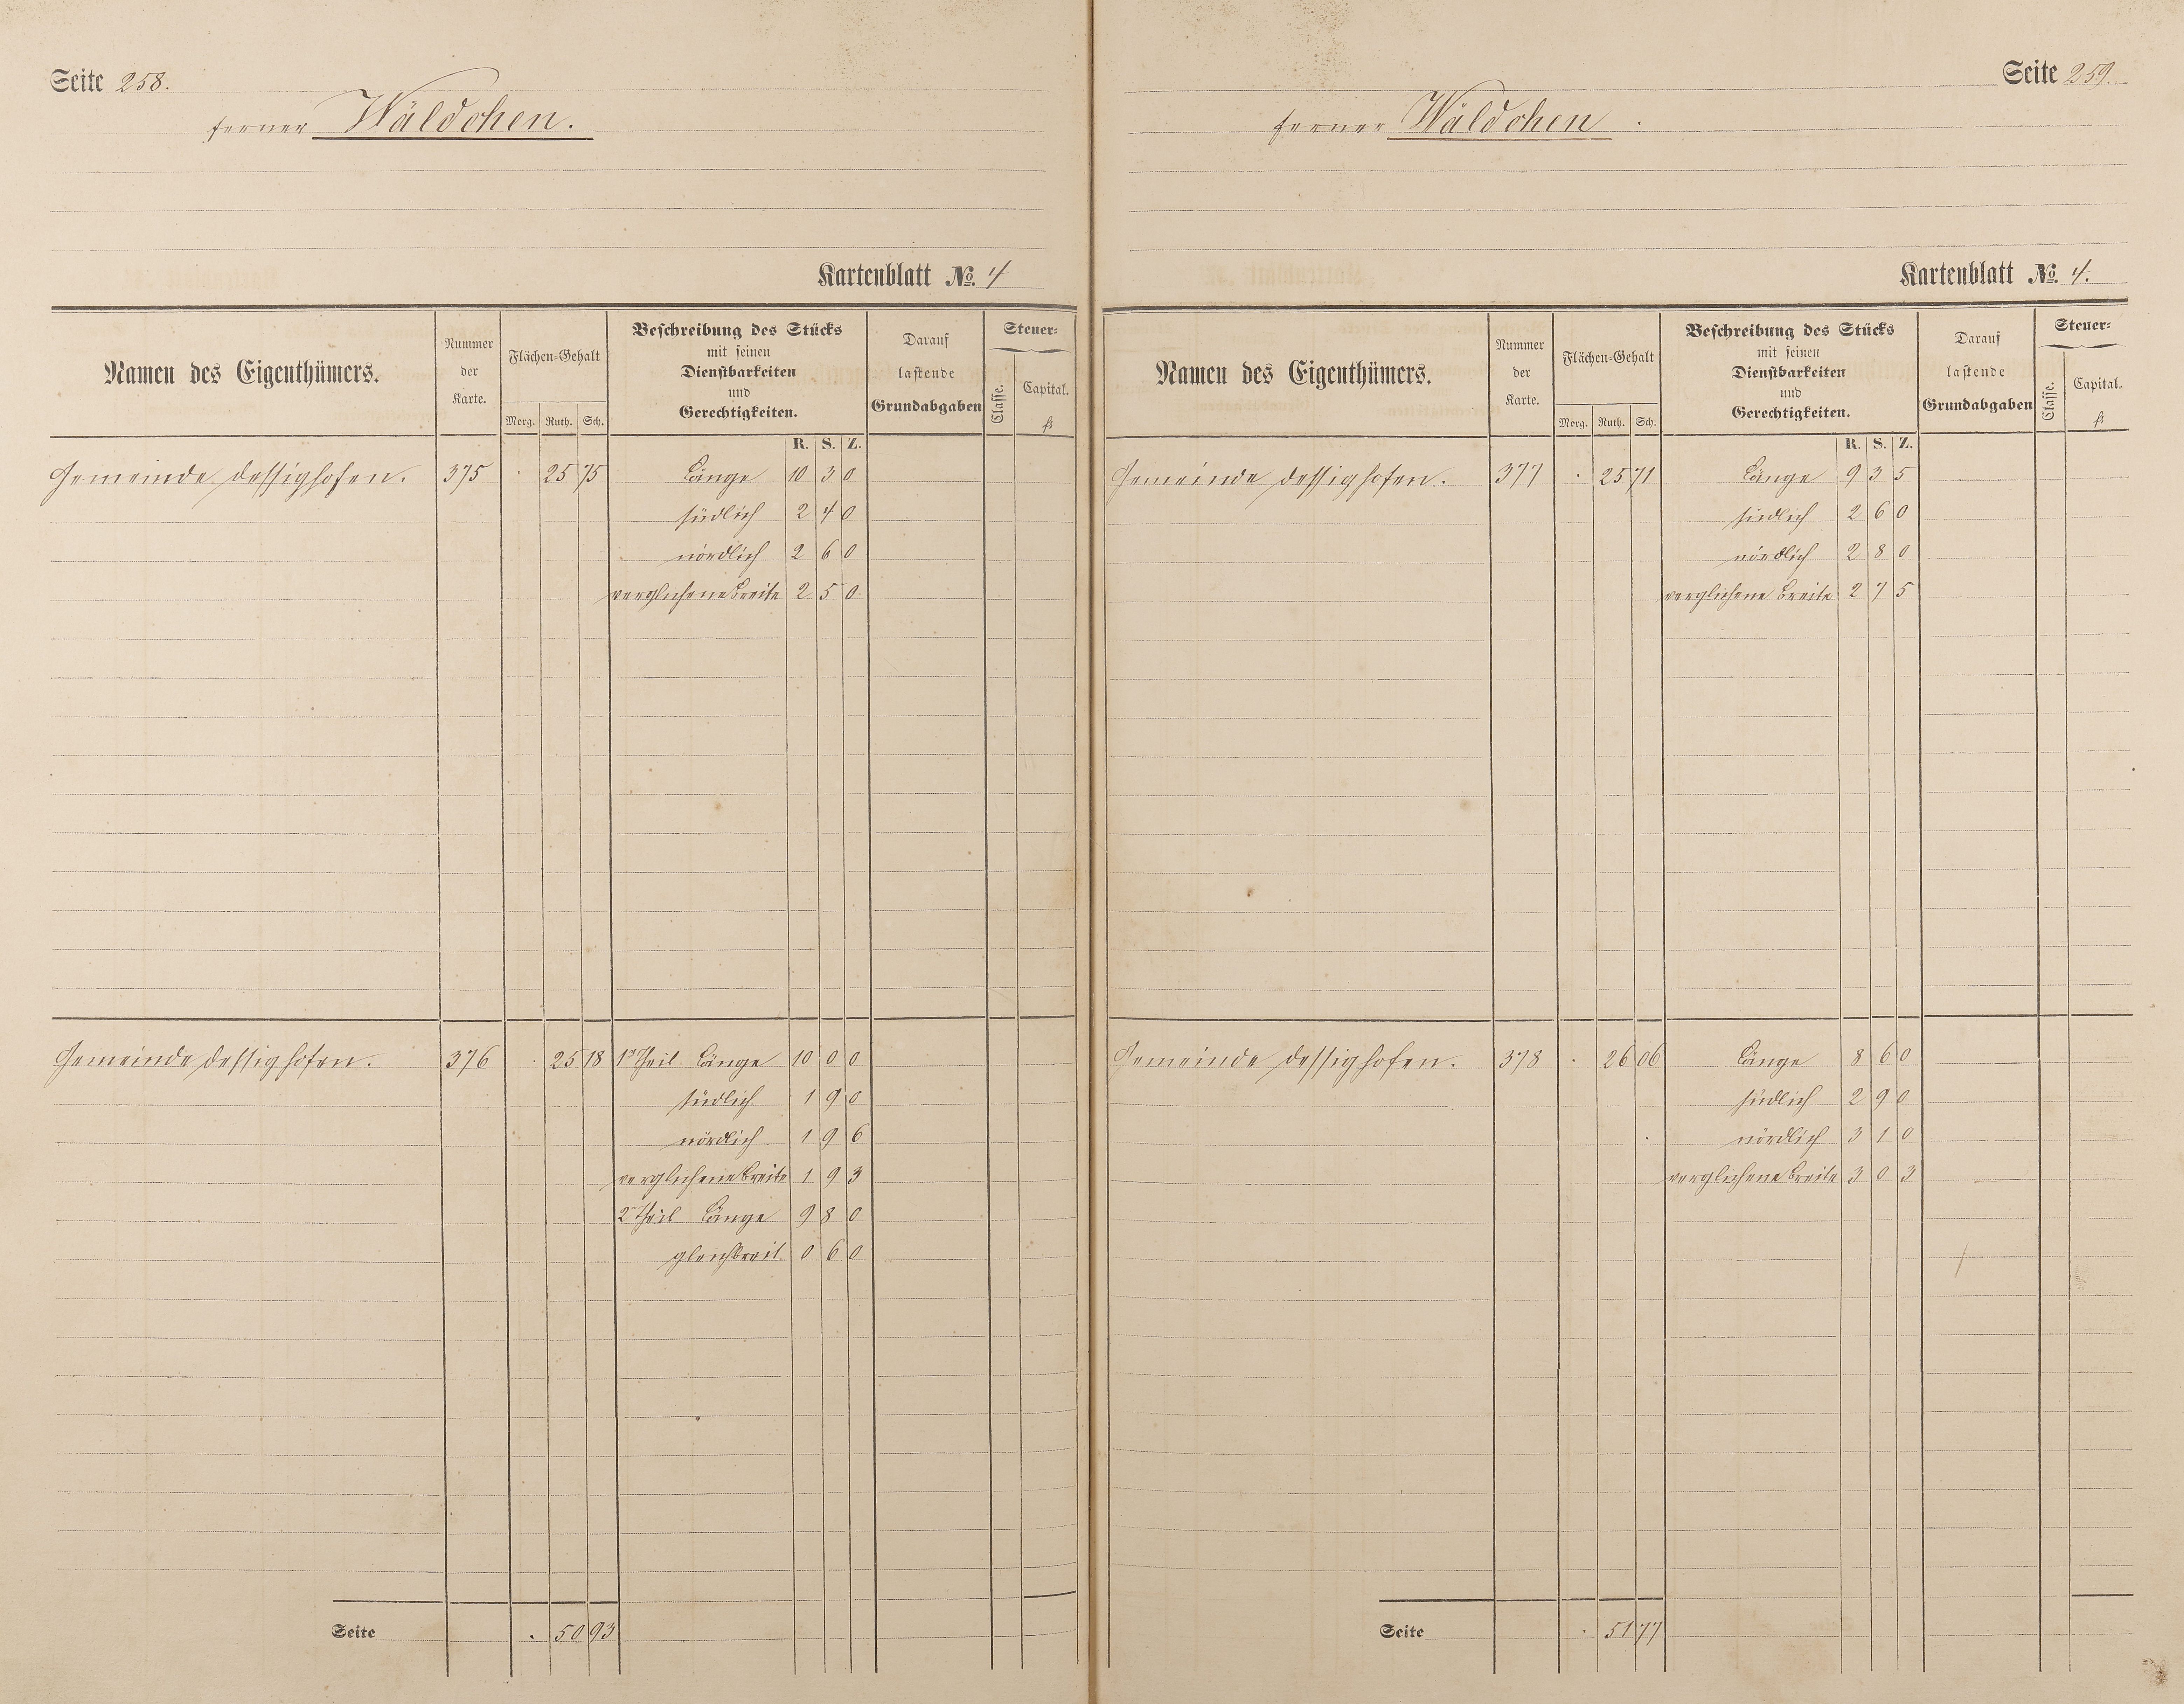 Seite 258.
ferner Wäldchen.
Kartenblatt No. 4
Namen des Eigenthümers.
Nummer der Karte.
Flächen-Gehalt
Morg. Ruth. Sch.
Beschreibung des Stücks
mit seinen
Dienstbarkeiten
und
Gerechtigkeiten.
Darauf
lastende
Grundabgaben
Steuer-
Classe. Capital.
fl
R. S. Z.
Gemeinde Dessighofen. 375 . 25 75 Länge 10 3 0
südlich 2 4 0
nördlich 2 6 0
verglichene Breite 2 5 0
Gemeinde Dessighofen. 376 . 25 18 1r Theil Länge 10 0 0
südlich 1 9 0
nördlich 1 9 6
verglichene Breite 1 9 3
2r Theil Länge 9 8 0
gleichbreit 0 6 0
Seite . 50 93
Seite 259.
ferner Wäldchen.
Kartenblatt No. 4.
Namen des Eigenthümers.
Nummer der Karte.
Flächen-Gehalt
Morg. Ruth. Sch.
Beschreibung des Stücks
mit seinen
Dienstbarkeiten
und
Gerechtigkeiten.
Darauf
lastende
Grundabgaben
Steuer-
Classe. Capital.
fl
R. S. Z.
Gemeinde Dessighofen. 377 . 25 71 Länge 9 3 5
südlich 2 6 0
nördlich 2 8 0
verglichene Breite 2 7 5
Gemeinde Dessighofen. 378 . 26 06 Länge 8 6 0
südlich 2 9 0
nördlich 3 1 0
verglichene Breite 3 0 3
Seite . 51 77